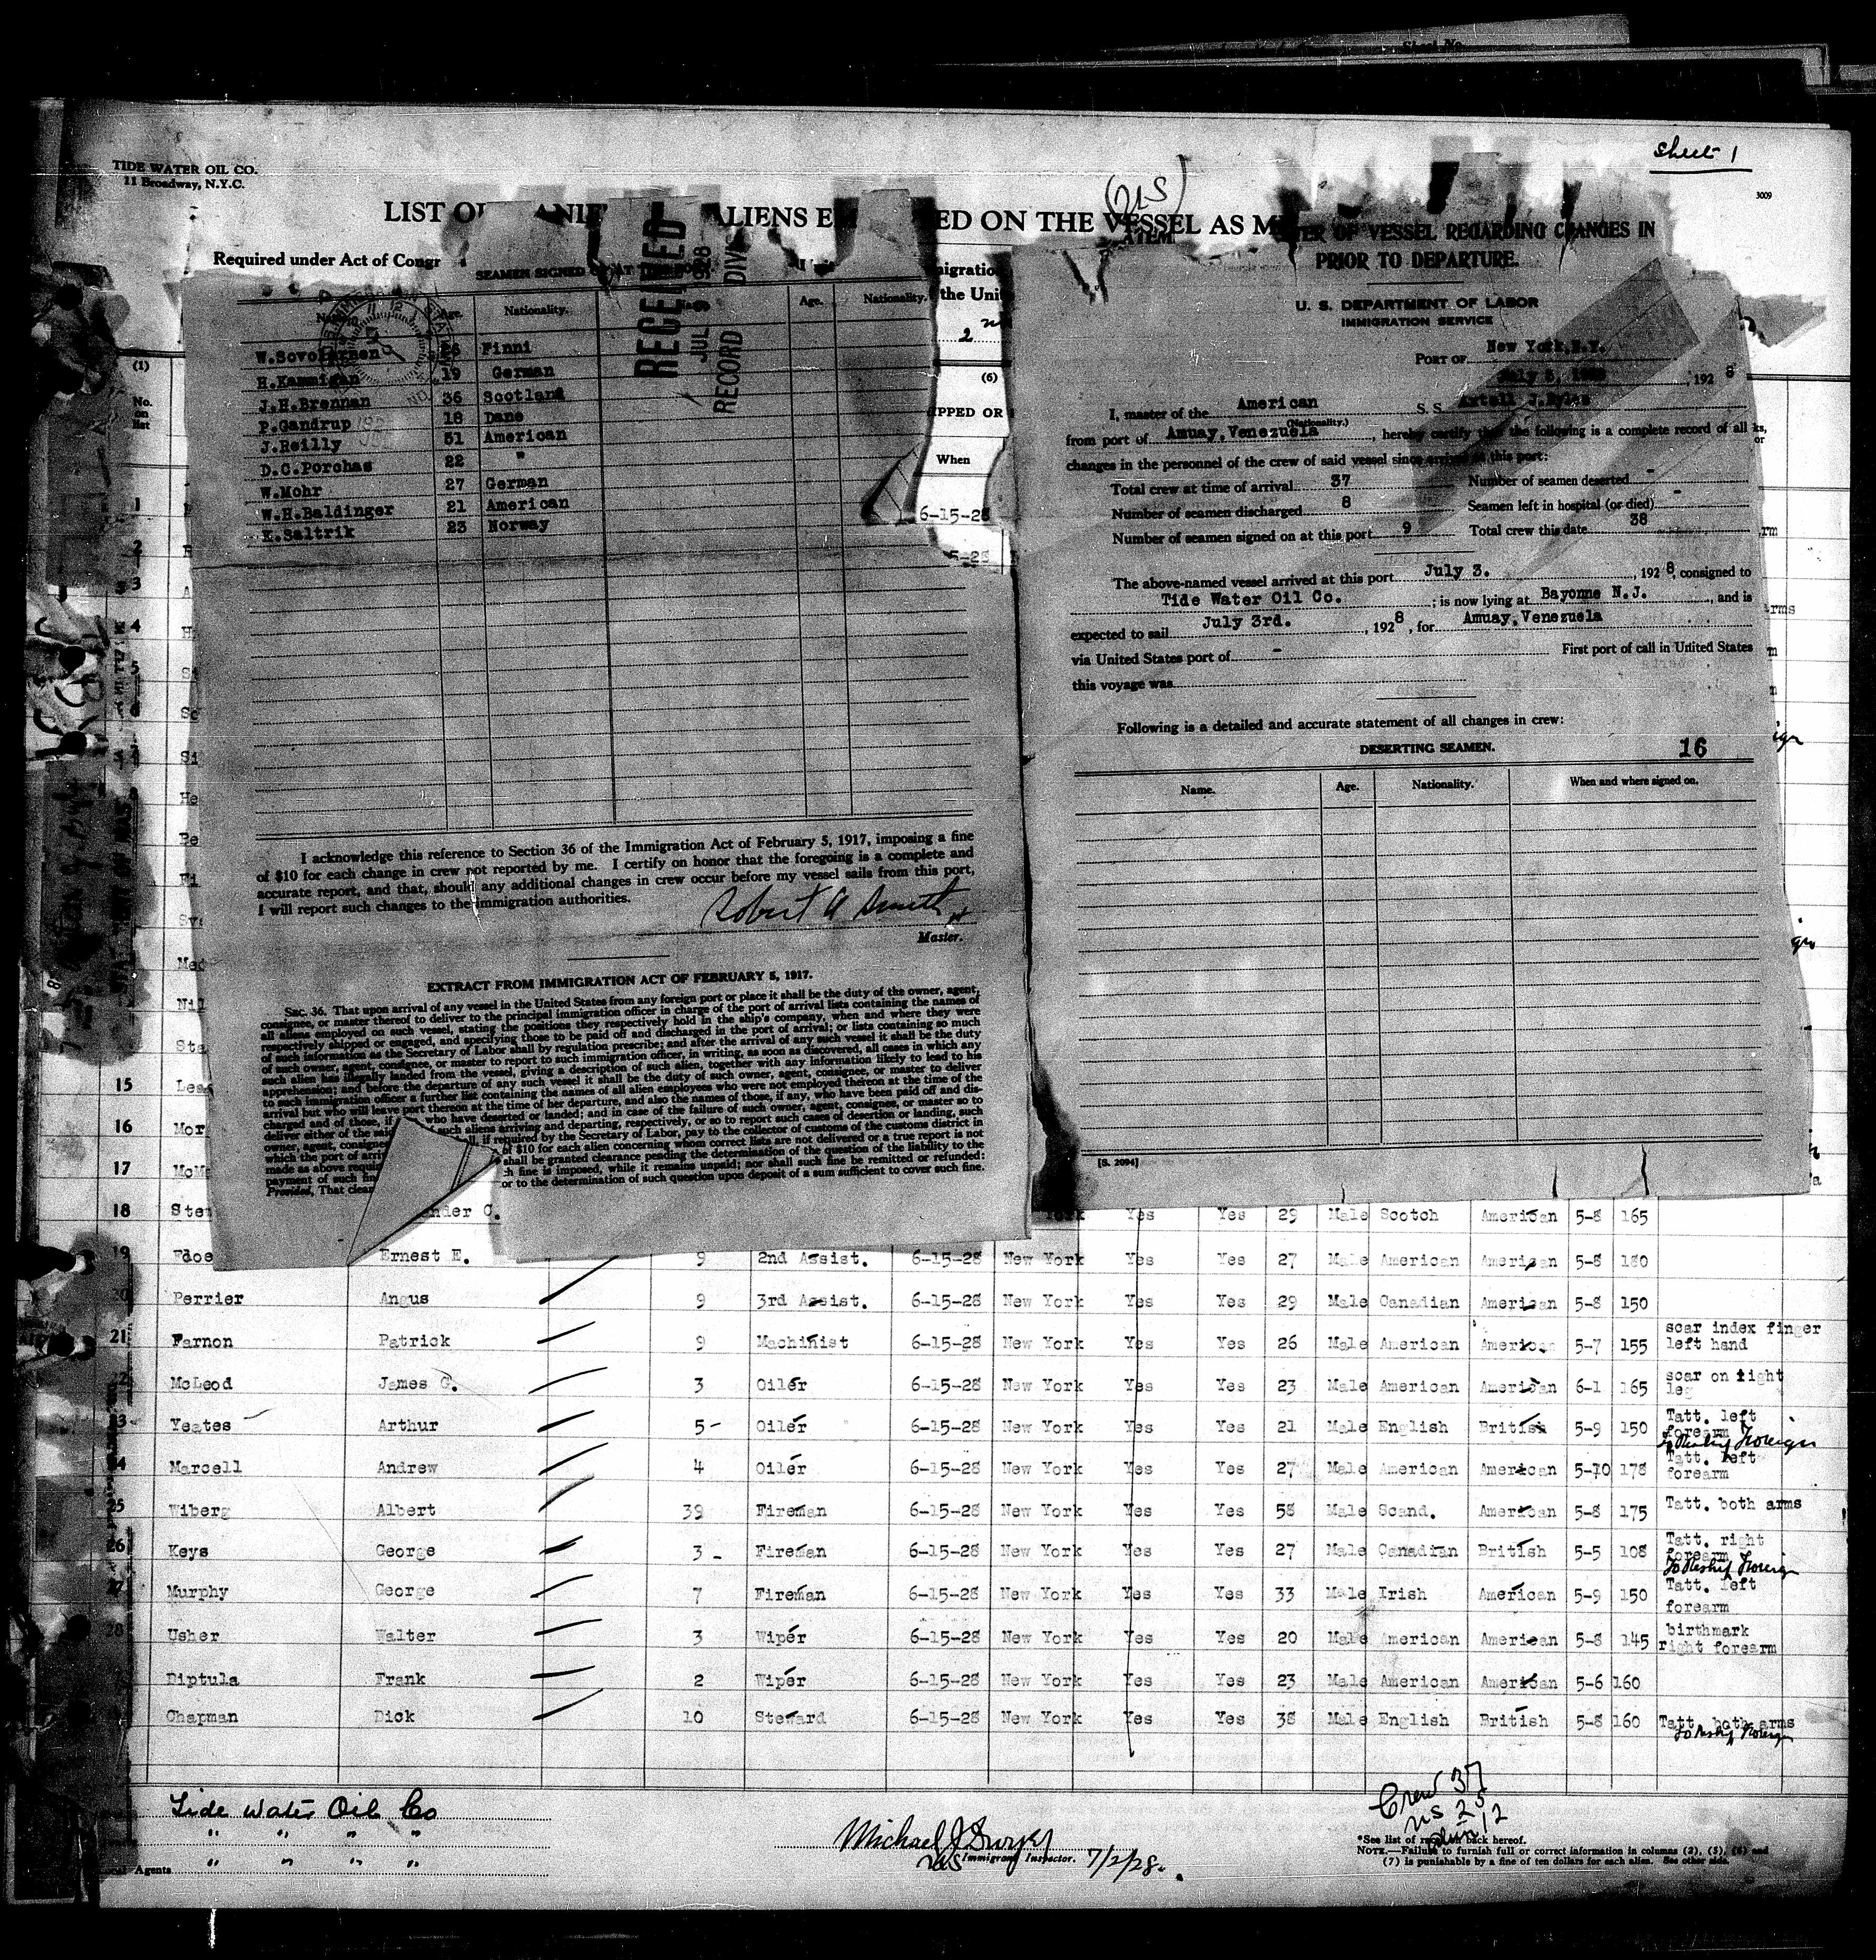 Sheet No.
sheet 1
TIDE WATER OIL CO.
11 Broadway, N.Y.C.
3009
LIST O ALIENS E ED ON THE VESSEL AS M
Required under Act of Congr
migration
the Unit
2
(1)
No.
on
list
(6)
IPPED OR
When
6-15-28
5-28
SEAMEN SIGNED AT
RECEIVED
JUL 9 1928
RECORD DIV
Age. Nationality. Age. Nationality.
Finni
H.Kammigan 19 German
J.H.Brennan 36 Scotland
P.Gandrup 18 Dane
J.Reilly 31 American
D.C.Porchas 22 "
W.Mohr 27 German
W.H.Baldinger 21 American
E.Saltrik 23 Norway
I acknowledge this reference to Section 36 of the Immigration Act of February 5, 1917, imposing a fine
of $10 for each change in crew not reported by me. I certify on honor that the foregoing is a complete and
accurate report, and that, should any additional changes in crew occur before my vessel sails from this port,
I will report such changes to the immigration authorities.
Robert A Smith
Master.
EXTRACT FROM IMMIGRATION ACT OF FEBRUARY 5, 1917.
SEC. 36. That upon arrival of any vessel in the United States from any foreign port or place it shall be the duty of the owner, agent,
consignee, or master thereof to deliver to the principal immigration officer in charge of the port of arrival lists containing the names of
all aliens employed on such vessel, stating the positions they respectively hold in the ship's company, when and where they were
respectively shipped or engaged, and specifying those to be paid off and discharged in the port of arrival; or lists containing so much
of such information as the Secretary of Labor shall by regulation prescribe; and after the arrival of any such vessel it shall be the duty
of such owner, agent, consignee, or master to report to such immigration officer, in writing, as soon as discovered, all cases in which any
such alien has illegally landed from the vessel, giving a description of such alien, together with any information likely to lead to his
apprehension; and before the departure of any such vessel it shall be the duty of such owner, agent, consignee, or master to deliver
to such immigration officer a further list containing the names of all alien employees who were not employed thereon at the time of the
arrival but who will leave port thereon at the time of her departure, and also the names of those, if any, who have been paid off and dis-
charged and of those, if who have deserted or landed; and in case of the failure of such owner, agent, consignee, or master so to
deliver either of the said such aliens arriving and departing, respectively, or so to report such cases of desertion or landing, such
owner, agent, consigne all, if required by the Secretary of Labor, pay to the collector of customs of the customs district in
which the port of arriv of $10 for each alien concerning whom correct lists are not delivered or a true report is not
made as above requir shall be granted clearance pending the determination of the question of the liability to the
payment of such fin h fine is imposed, while it remains unpaid; nor shall such fine be remitted or refunded:
Provided, That clear or to the determination of such question upon deposit of a sum sufficient to cover such fine.
TER OF VESSEL REGARDING CHANGES IN
PRIOR TO DEPARTURE.
U. S. DEPARTMENT OF LABOR
IMMIGRATION SERVICE
PORT OF New York, N.Y.
, 192 8
I, master of the American S. S. Axtell J.Byles
(Nationality.)
from port of Amuay, Venezuela, hereby certify that the following is a complete record of all
changes in the personnel of the crew of said vessel since arrival at this port:
Total crew at time of arrival 37 Number of seamen deserted -
Number of seamen discharged 8 Seamen left in hospital (or died) -
Number of seamen signed on at this port 9 Total crew this date 38
The above-named vessel arrived at this port July 3. , 192 8, consigned to
Tide Water Oil Co. ; is now lying at Bayonne N.J. , and is
expected to sail July 3rd. , 192 8, for Amuay, Venezuela
via United States port of - First port of call in United States
this voyage was
Following is a detailed and accurate statement of all changes in crew:
DESERTING SEAMEN. 16
Name. Age. Nationality. When and where signed on.
[S. 2094]
1
2
3
4
5
15 Lea
16 Mor
17 McM
18 Stew nder C. York Yes Yes 29 Male Scotch American 5-8 165
19 Ernest E. 9 2nd Assist. 6-15-28 New York Yes Yes 27 Male American American 5-8 180
20 Perrier Angus 9 3rd Assist. 6-15-28 New York Yes Yes 29 Male Canadian American 5-8 150
21 Farnon Patrick 9 Machinist 6-15-28 New York Yes Yes 26 Male American American 5-7 155 scar index finger left hand
22 McLeod James G. 3 Oiler 6-15-28 New York Yes Yes 23 Male American American 6-1 165 scar on right leg
23 Yeates Arthur 5 - Oiler 6-15-28 New York Yes Yes 21 Male English British 5-9 150 Tatt. left forearm
To Reship Foreign
24 Marcell Andrew 4 Oiler 6-15-28 New York Yes Yes 27 Male American American 5-10 178 Tatt. left forearm
25 Wiberg Albert 39 Fireman 6-15-28 New York Yes Yes 58 Male Scand. American 5-8 175 Tatt. both arms
26 Keys George 3 - Fireman 6-15-28 New York Yes Yes 27 Male Canadian British 5-5 108 Tatt. right forearm
To Reship Foreign
27 Murphy George 7 Fireman 6-15-28 New York Yes Yes 33 Male Irish American 5-9 150 Tatt. left forearm
28 Usher Walter 3 Wiper 6-15-28 New York Yes Yes 20 Male American American 5-8 145 birthmark right forearm
Diptula Frank 2 Wiper 6-15-28 New York Yes Yes 23 Male American American 5-6 160
Chapman Dick 10 Steward 6-15-28 New York Yes Yes 38 Male English British 5-8 160 Tatt. both arms
To Reship Foreign
Tide Water Oil Co
" " " "
" " " "
Agents
Immigrant Inspector. 7/2/28.
Crew 37
US 25
12
*See list of races on back hereof.
NOTE.—Failure to furnish full or correct information in columns (2), (5), (6) and
(7) is punishable by a fine of ten dollars for each alien. See other side.